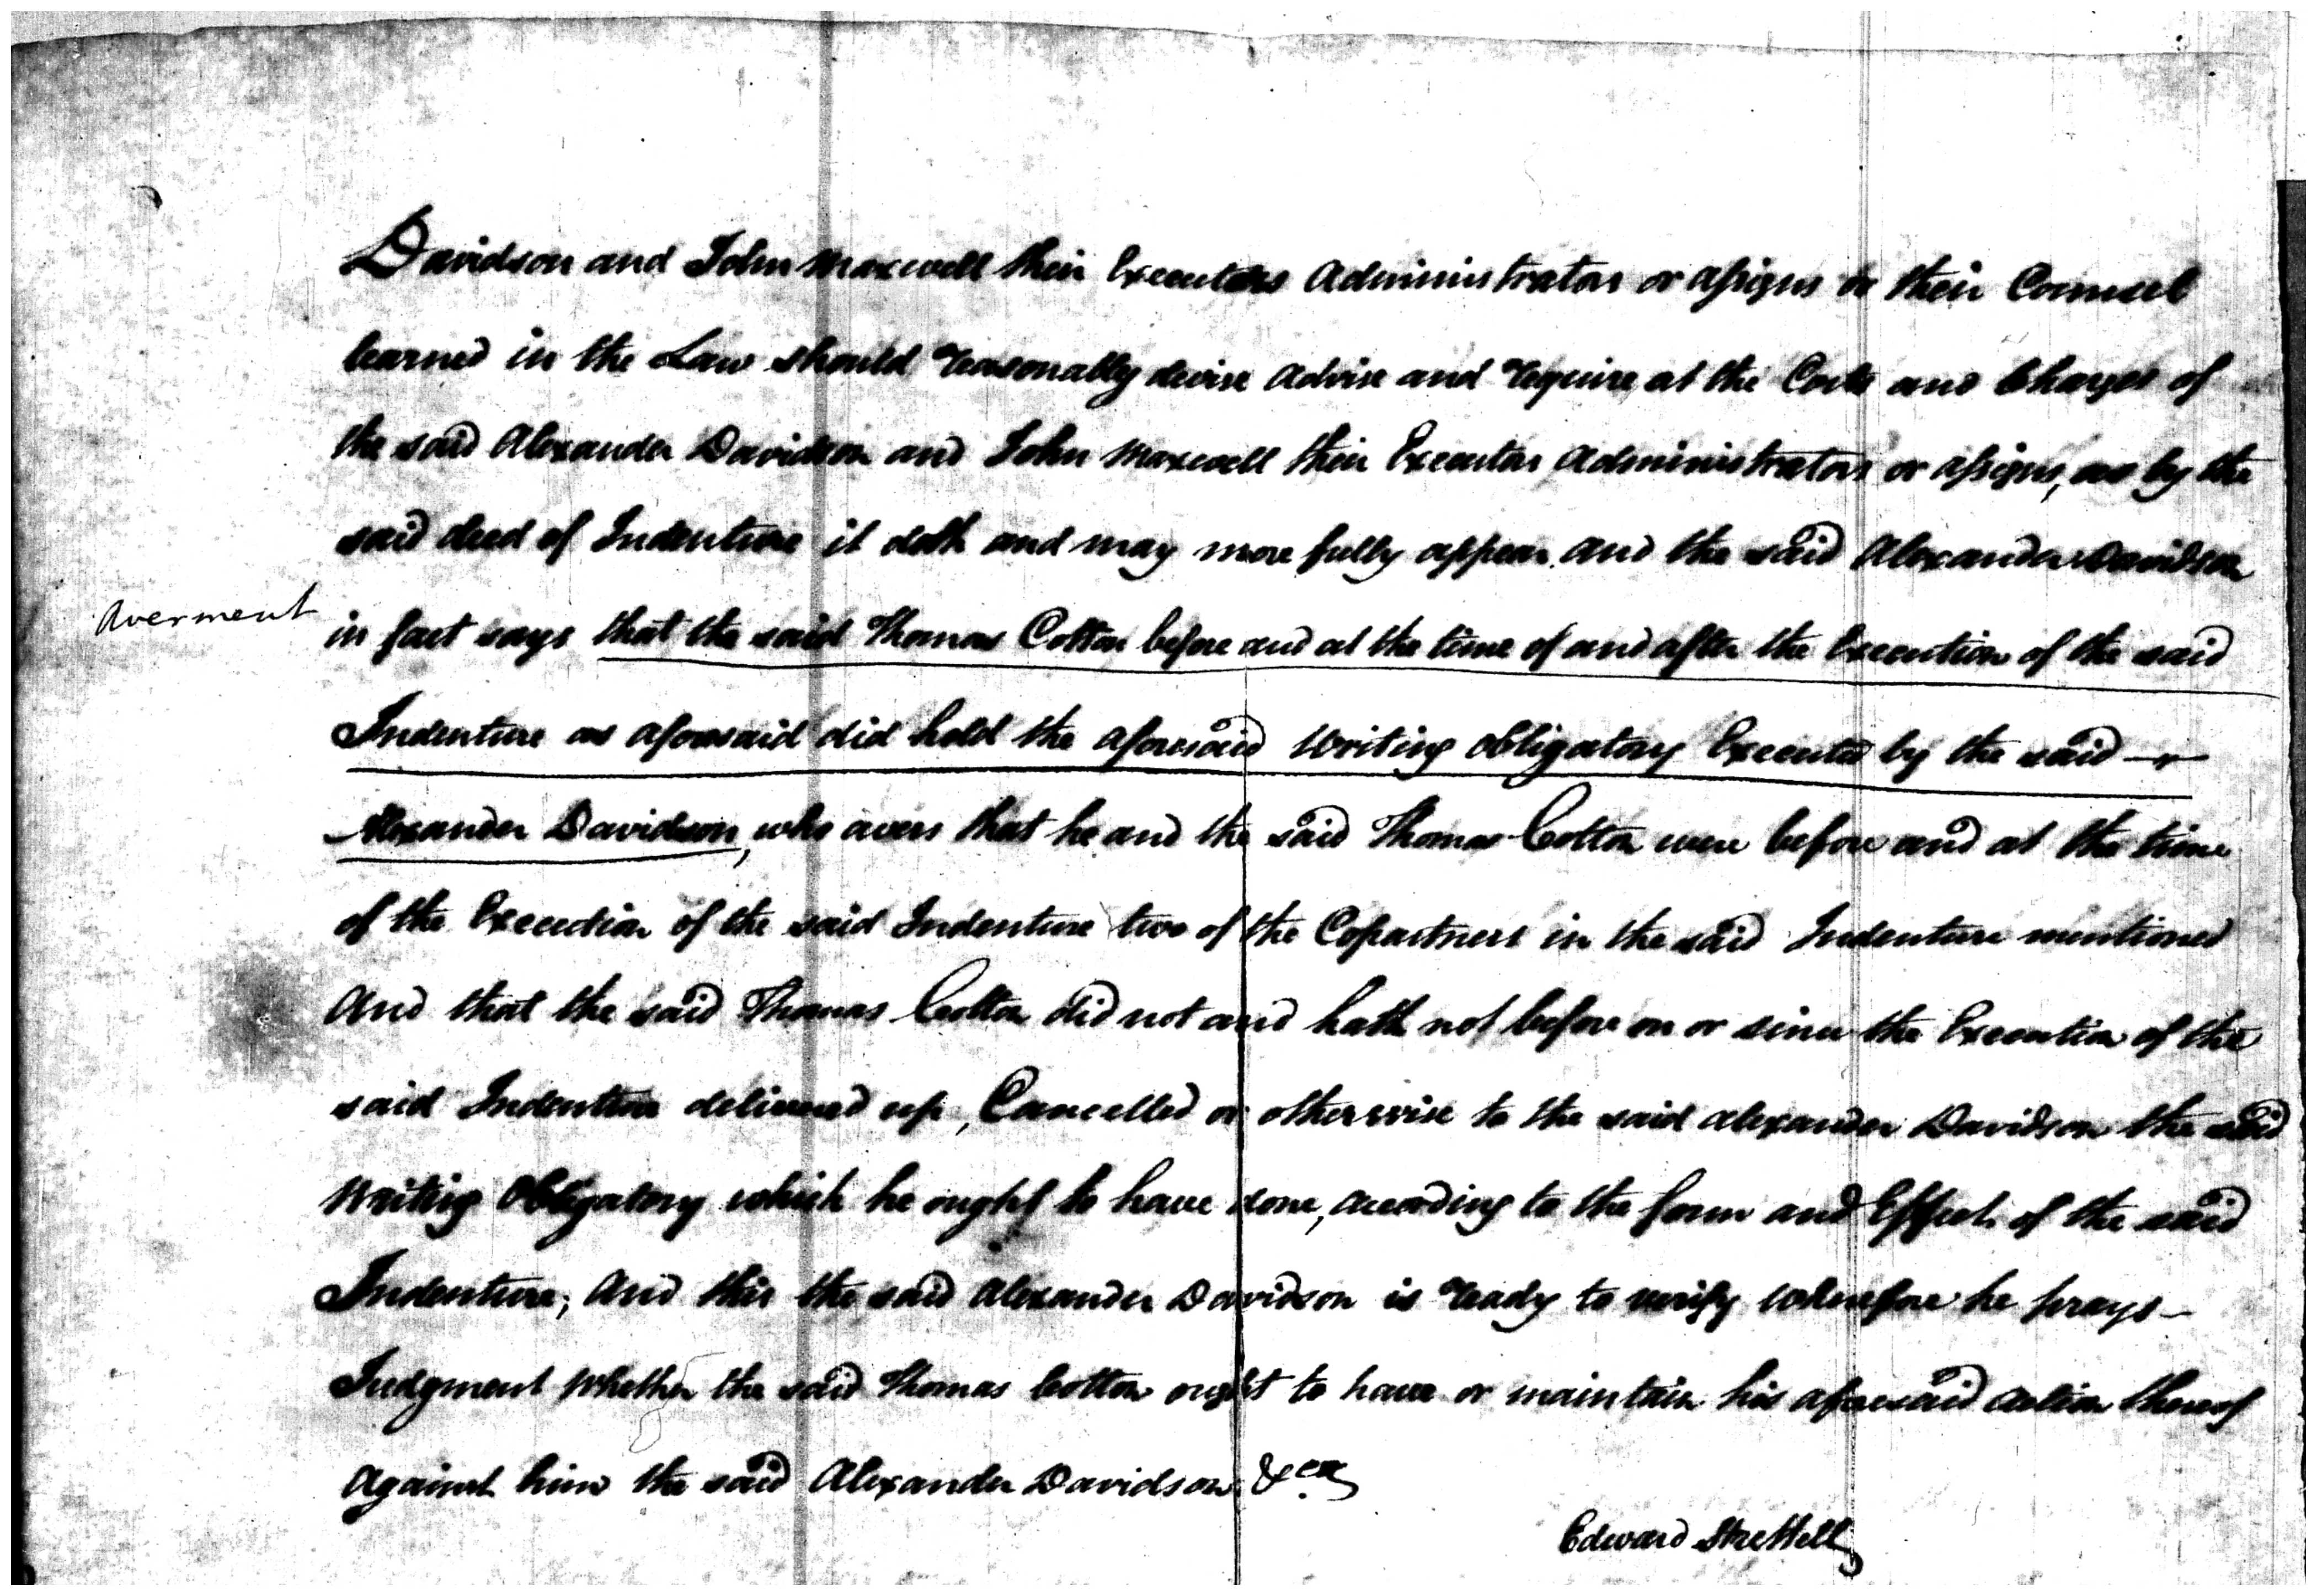 Davidson and John Maxwell their Executors Administrators or assigns or their Counsel
learned in the Law should reasonably devise Advise and require, at the Costs and Charges of
the said Alexander Davidson and John Maxwell their Executors Administrators or assigns, as by the
said deed of Indenture it doth and may more fully appear. And the said Alexander Davidson
Averment
in fact says that the said Thomas Cotton before and at the time of and after the Execution of the said
Indenture as aforesaid did hold the aforesaid Writing obligatory Executed by the said
Alexander Davidson, who avers that he and the said Thomas Cotton were before and at the time
of the Execution of the said Indenture two of the Copartners in the said Indenture mentioned
And that the said Thomas Cotton did not and hath not before on or since the Execution of the
said Indenture delivered up, Cancelled or otherwise to the said Alexander Davidson the said
Writing Obligatory which he ought to have done, according to the form and Effect of the said
Indenture; And this the said Alexander Davidson is ready to verify Wherefore he prays –
Judgment Whether the said Thomas Cotton ought to have or maintain his aforesaid Action thereof
Against him the said Alexander Davidson &ca
Edward Strettell